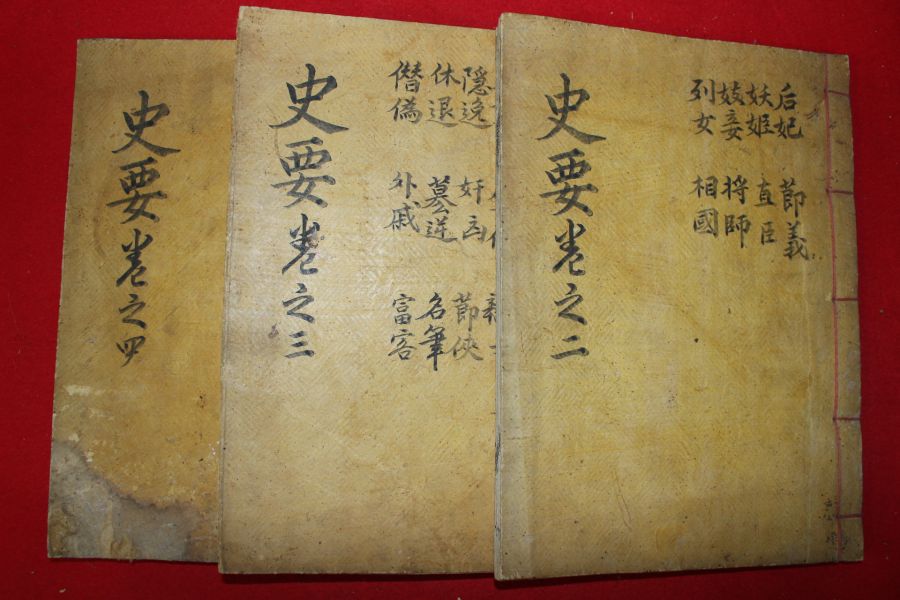 后妃 節義
妖姬 直臣
妓妾 將帥
列女 相國
史要卷之二
隱逸 奸凶 節俠
休退 簒逆 名筆
僭僞 外戚 富客
史要卷之三
史要卷之四